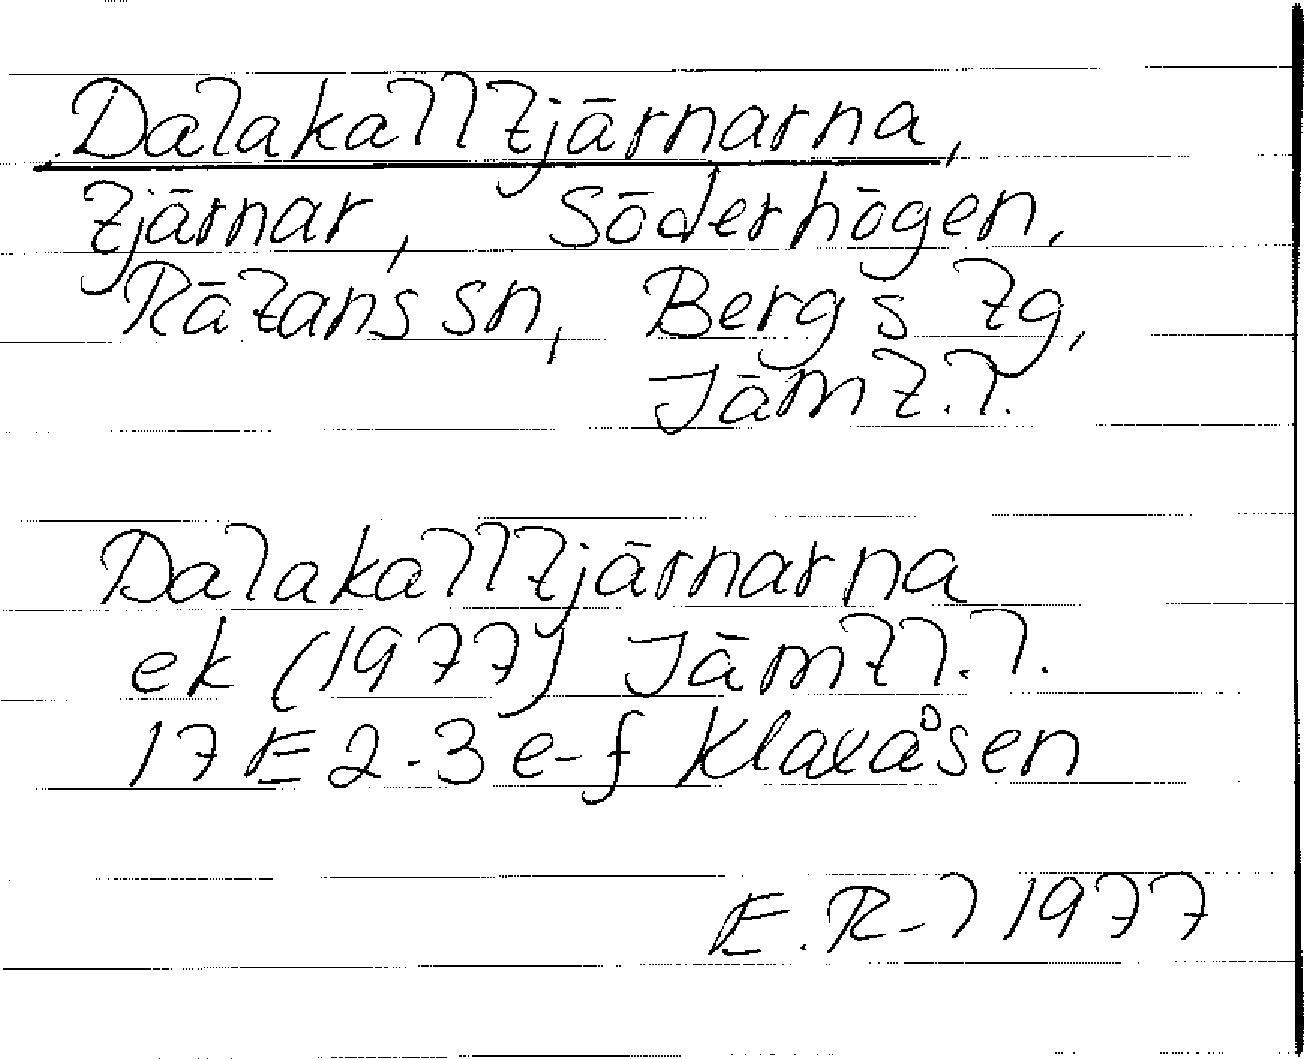 Dalakalltjärnarna,
tjärnar, Söderhögen,
Rätans sn, Bergs tg,
Jämt.l.
Dalakalltjärnarna
ek (1977) Jämtl.l.
17E 2-3 e-f Klaxåsen
E.R-l 1977